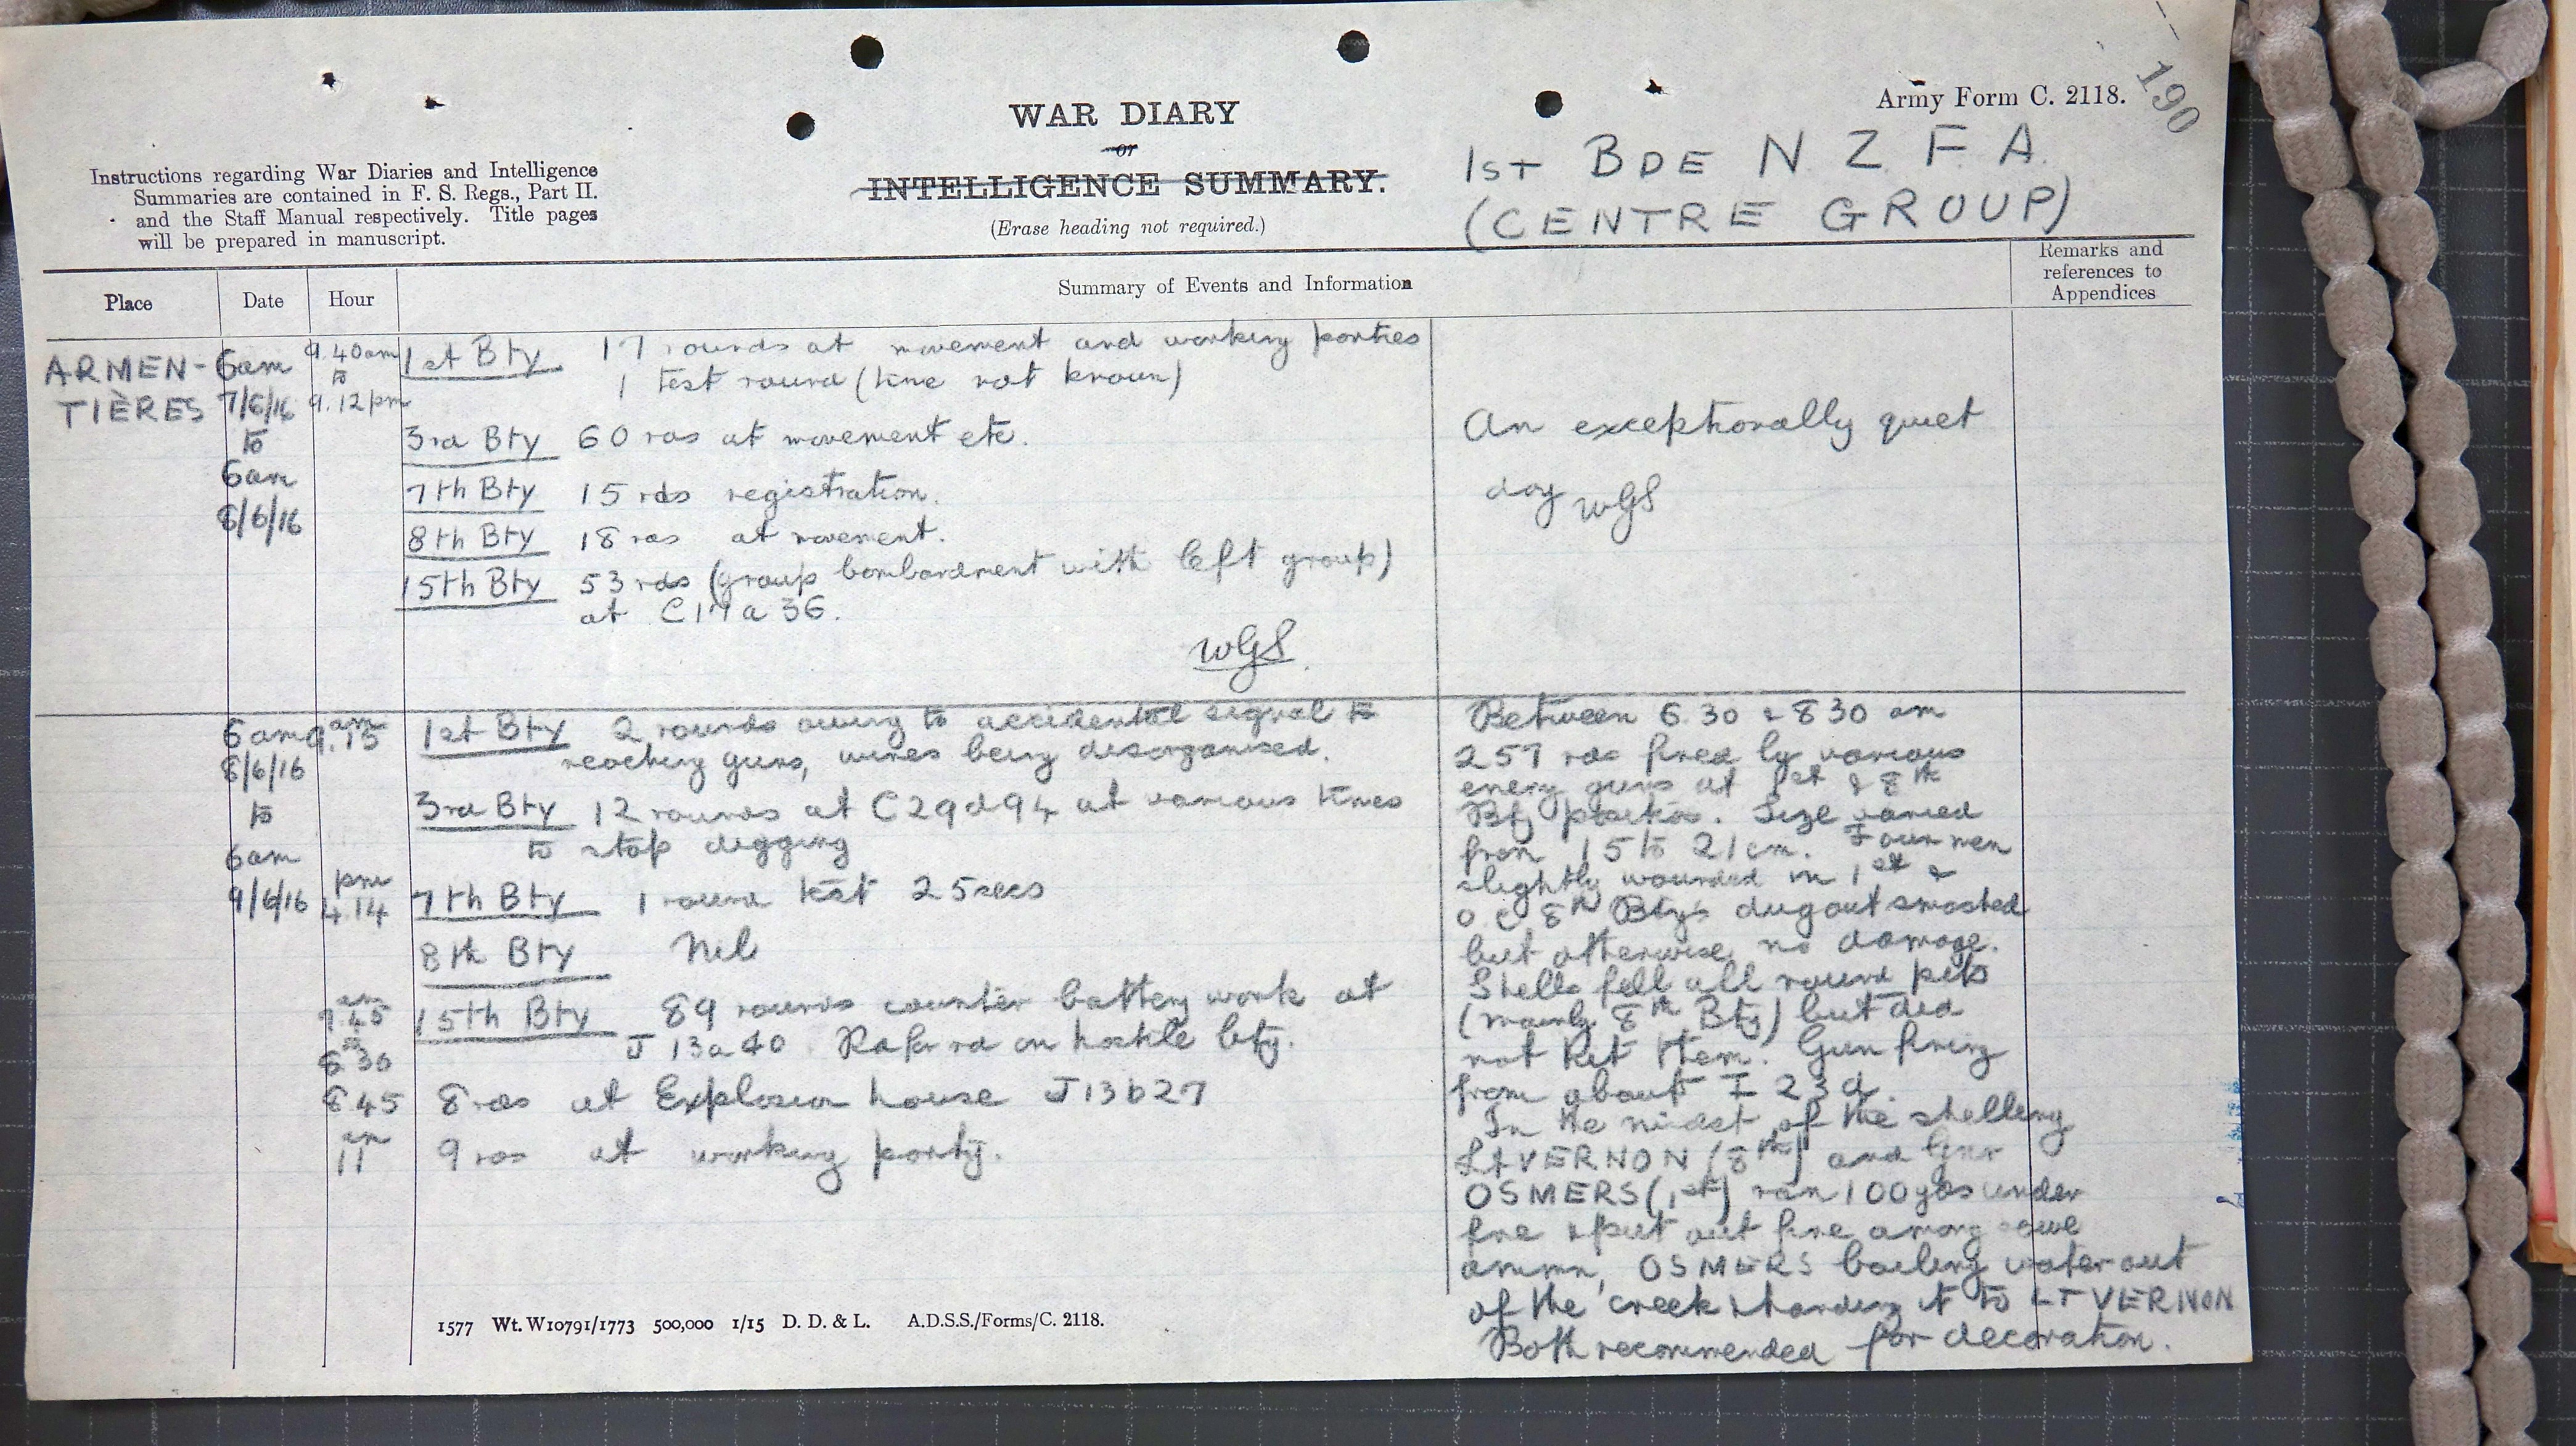 190
Army Form C. 2118.
WAR DIARY
or
INTELLIGENCE SUMMARY.
(Erase heading not required.)
Instructions regarding War Diaries and Intelligence
Summaries are contained in F. S. Regs., Part II.
and the Staff Manual respectively. Title pages
will be prepared in manuscript.
1ST BDE N Z F A
(CENTRE GROUP)
Place
Date
Hour
Summary of Events and Information
Remarks and
references to
Appendices
ARMEN-
TIÈRES
6am
7/6/16
to
6am
8/6/16
9.40am
to
9.12pm
1st Bty 17 rounds at movement and working parties
1 test round (time not known)
3rd Bty 60 rds at movement etc.
7th Bty 15 rds registration.
8th Bty 18 rds at movement.
15th Bty 53 rds (group bombardment with left group)
at C17a36.
WGS
An exceptionally quiet
day WGS
6am
8/6/16
to
6am
9/6/16
am
9.15
1st Bty 2 rounds owing to accidental signal to
reaching guns, wires being disorganised.
3rd Bty 12 rounds at C29d94 at various times
to stop digging
pm
4.14
7th Bty 1 round test 25secs
8th Bty Nil
am
7.45
to
8 30
15th Bty 89 rounds counter battery work at
J 13a40. on hostile bty.
8 45 8 rds at Explosion house J13b27
am
11 9 rds at working party.
Between 6.30 & 8 30 am
257 rds fired by various
enemy guns at 1st & 8th
Bty position. Size varied
from 15 to 21cm. Four men
slightly wounded in 1st &
O.C 8th Bty's dugout smashed
but otherwise no damage.
Shells fell all round pits
(mainly 8th Bty) but did
not hit them. Gun firing
from about I 23d.
In the midst of the shelling
Lt VERNON (8th) and Gnr
OSMERS (1st) ran 100yds under
fire & put out fire among some
ammn, OSMERS bailing water out
of the creek & handing it to LT VERNON
Both recommended for decoration.
1577 Wt. W10791/1773 500,000 1/15 D. D. & L. A.D.S.S./Forms/C. 2118.